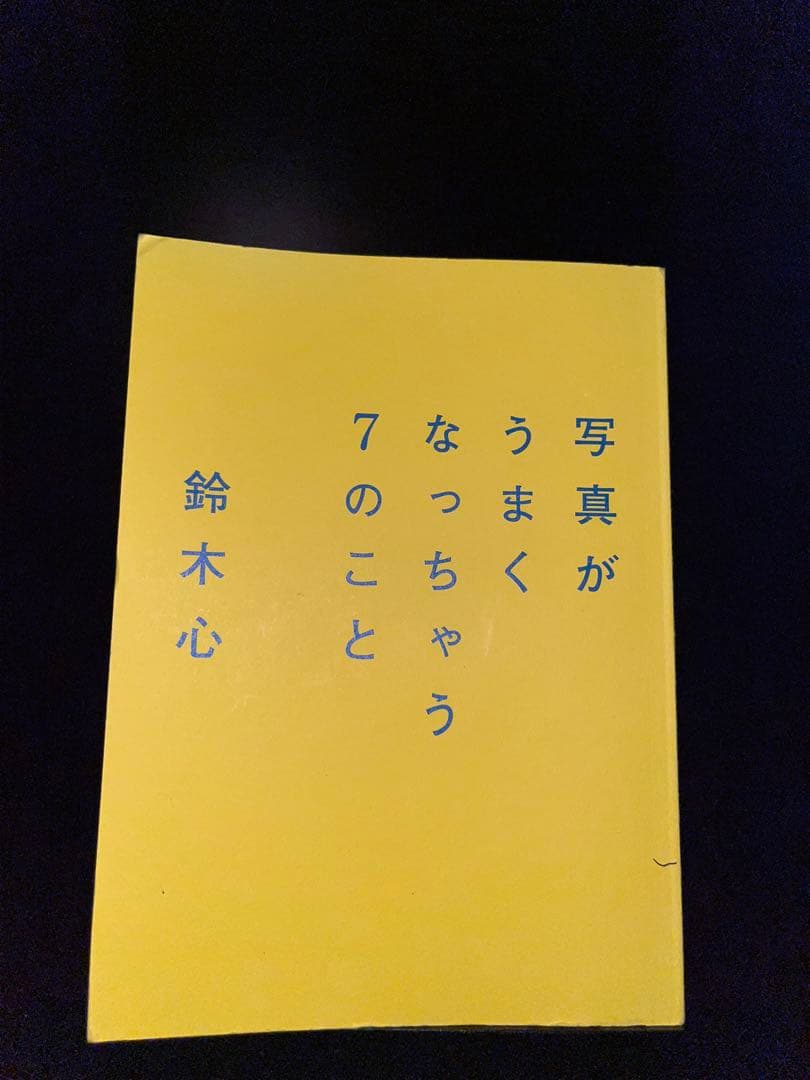 写真が
うまく
なっちゃう
7のこと
鈴木心